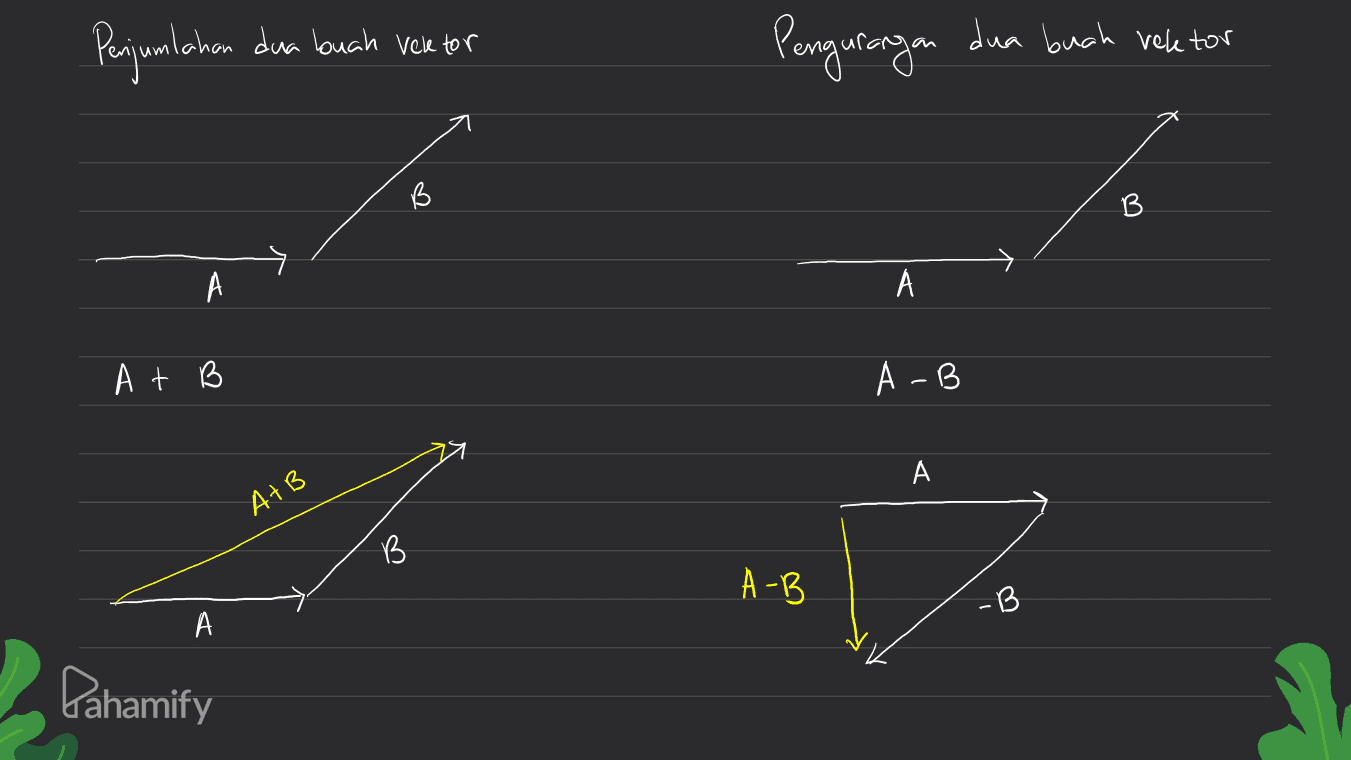 Penjumlahan dua buah vektor
B
A
A + B
A+B
B
A
Pengurangan dua buah vektor
B
A
A - B
A
A-B
-B
Pahamify